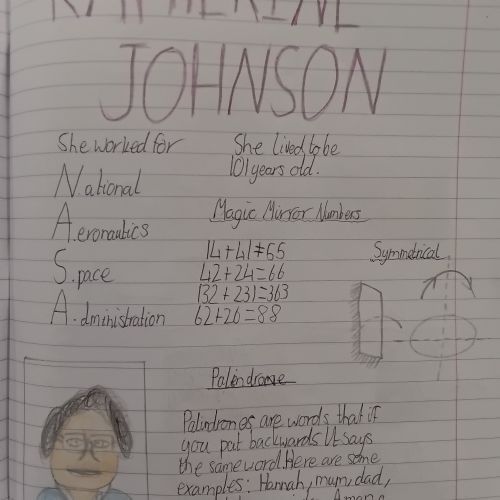 KATHERINE
JOHNSON
She worked for
National
Aeronautics
Space
Administration
She lived to be
101 years old.
Magic Mirror Numbers
14+41=55
42+24=66
132+231=363
62+26=88
Symmetrical
Palindrome
Palindromes are words that if
you put backwards it says
the same word. Here are some
examples: Hannah, mum, dad,